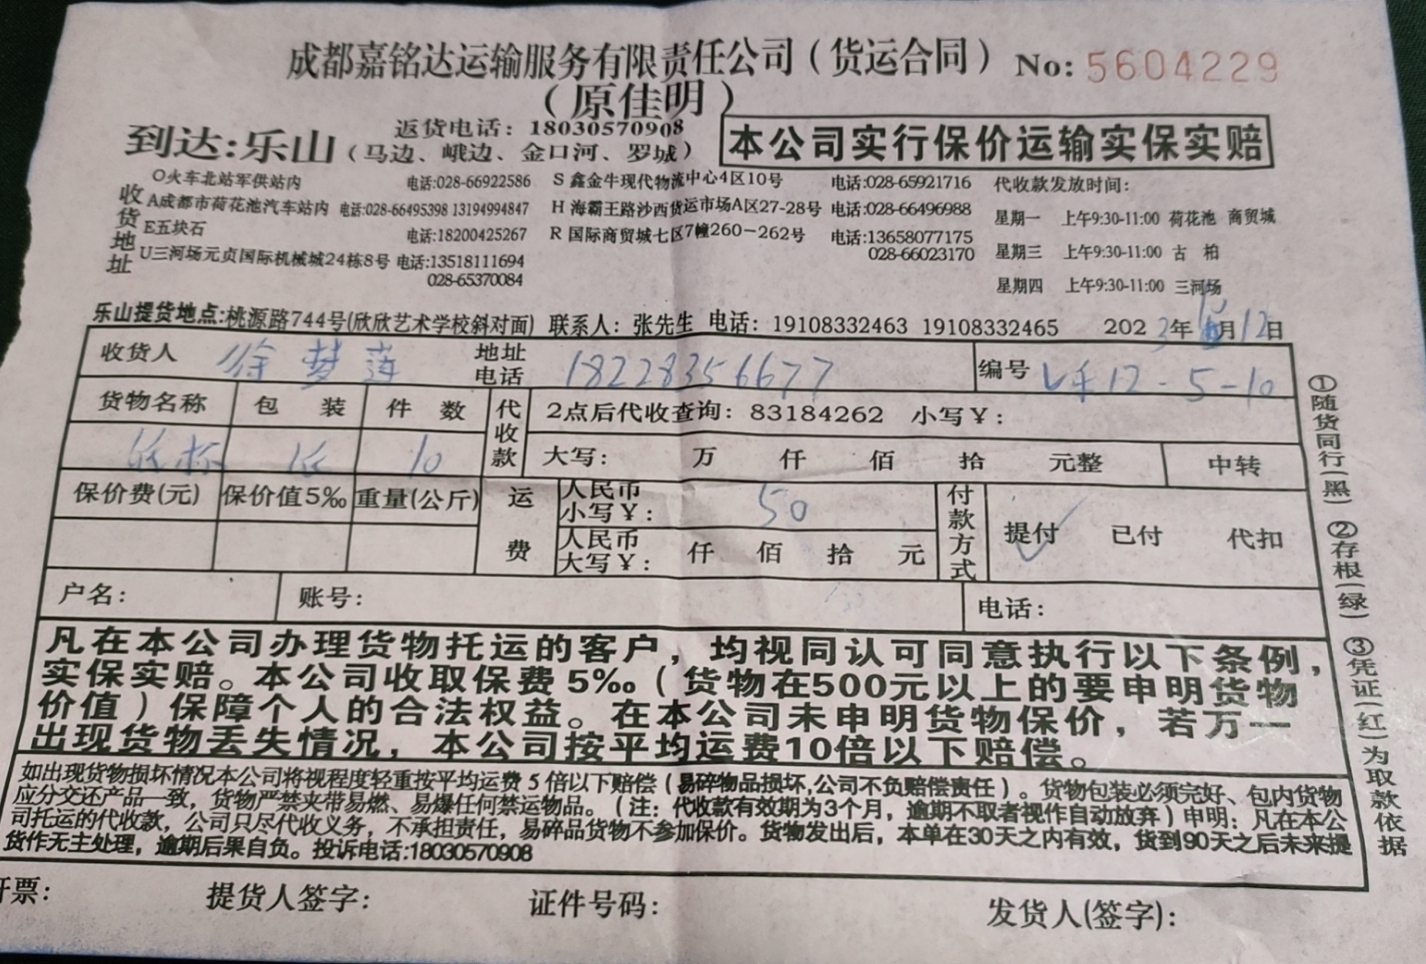 成都嘉铭达运输服务有限责任公司（货运合同） No: 5604229
（原佳明）
返货电话：18030570908
到达:乐山（马边、峨边、金口河、罗城）
本公司实行保价运输实保实赔
收货地址
O火车北站军供站内 电话:028-66922586 S 鑫金牛现代物流中心4区10号 电话:028-65921716 代收款发放时间：
A成都市荷花池汽车站内 电话:028-66495398 13194994847 H 海霸王路沙西货运市场A区27-28号 电话:028-66496988 星期一 上午9:30-11:00 荷花池 商贸城
E五块石 电话:18200425267 R 国际商贸城七区7幢260－262号 电话:13658077175
028-66023170 星期三 上午9:30-11:00 古 柏
U三河场元贞国际机械城24栋8号 电话:13518111694
028-65370084 星期四 上午9:30-11:00 三河场
乐山提货地点:桃源路744号(欣欣艺术学校斜对面) 联系人：张先生 电话：19108332463 19108332465 2023年10月12日
收货人 徐梦莲 地址电话 18228356677 编号 12-5-10
货物名称 包 装 件 数 代收款 2点后代收查询：83184262 小写￥：
10 大写： 万 仟 佰 拾 元整 中转
保价费(元) 保价值5‰ 重量(公斤) 运费 人民币小写￥： 50 付款方式 提付 已付 代扣
人民币大写￥： 仟 佰 拾 元
户名： 账号： 电话：
凡在本公司办理货物托运的客户，均视同认可同意执行以下条例，
实保实赔。本公司收取保费5‰（货物在500元以上的要申明货物
价值）保障个人的合法权益。在本公司未申明货物保价，若万一
出现货物丢失情况，本公司按平均运费10倍以下赔偿。
如出现货物损坏情况本公司将视程度轻重按平均运费５倍以下赔偿（易碎物品损坏,公司不负赔偿责任）。货物包装必须完好、包内货物
应分交还产品一致，货物严禁夹带易燃、易爆任何禁运物品。（注：代收款有效期为3个月，逾期不取者视作自动放弃）申明：凡在本公
司托运的代收款，公司只尽代收义务，不承担责任，易碎品货物不参加保价。货物发出后，本单在30天之内有效，货到90天之后未来提
货作无主处理，逾期后果自负。投诉电话:18030570908
开票： 提货人签字： 证件号码： 发货人(签字)：
①随货同行(黑) ②存根(绿) ③凭证(红)为取款依据